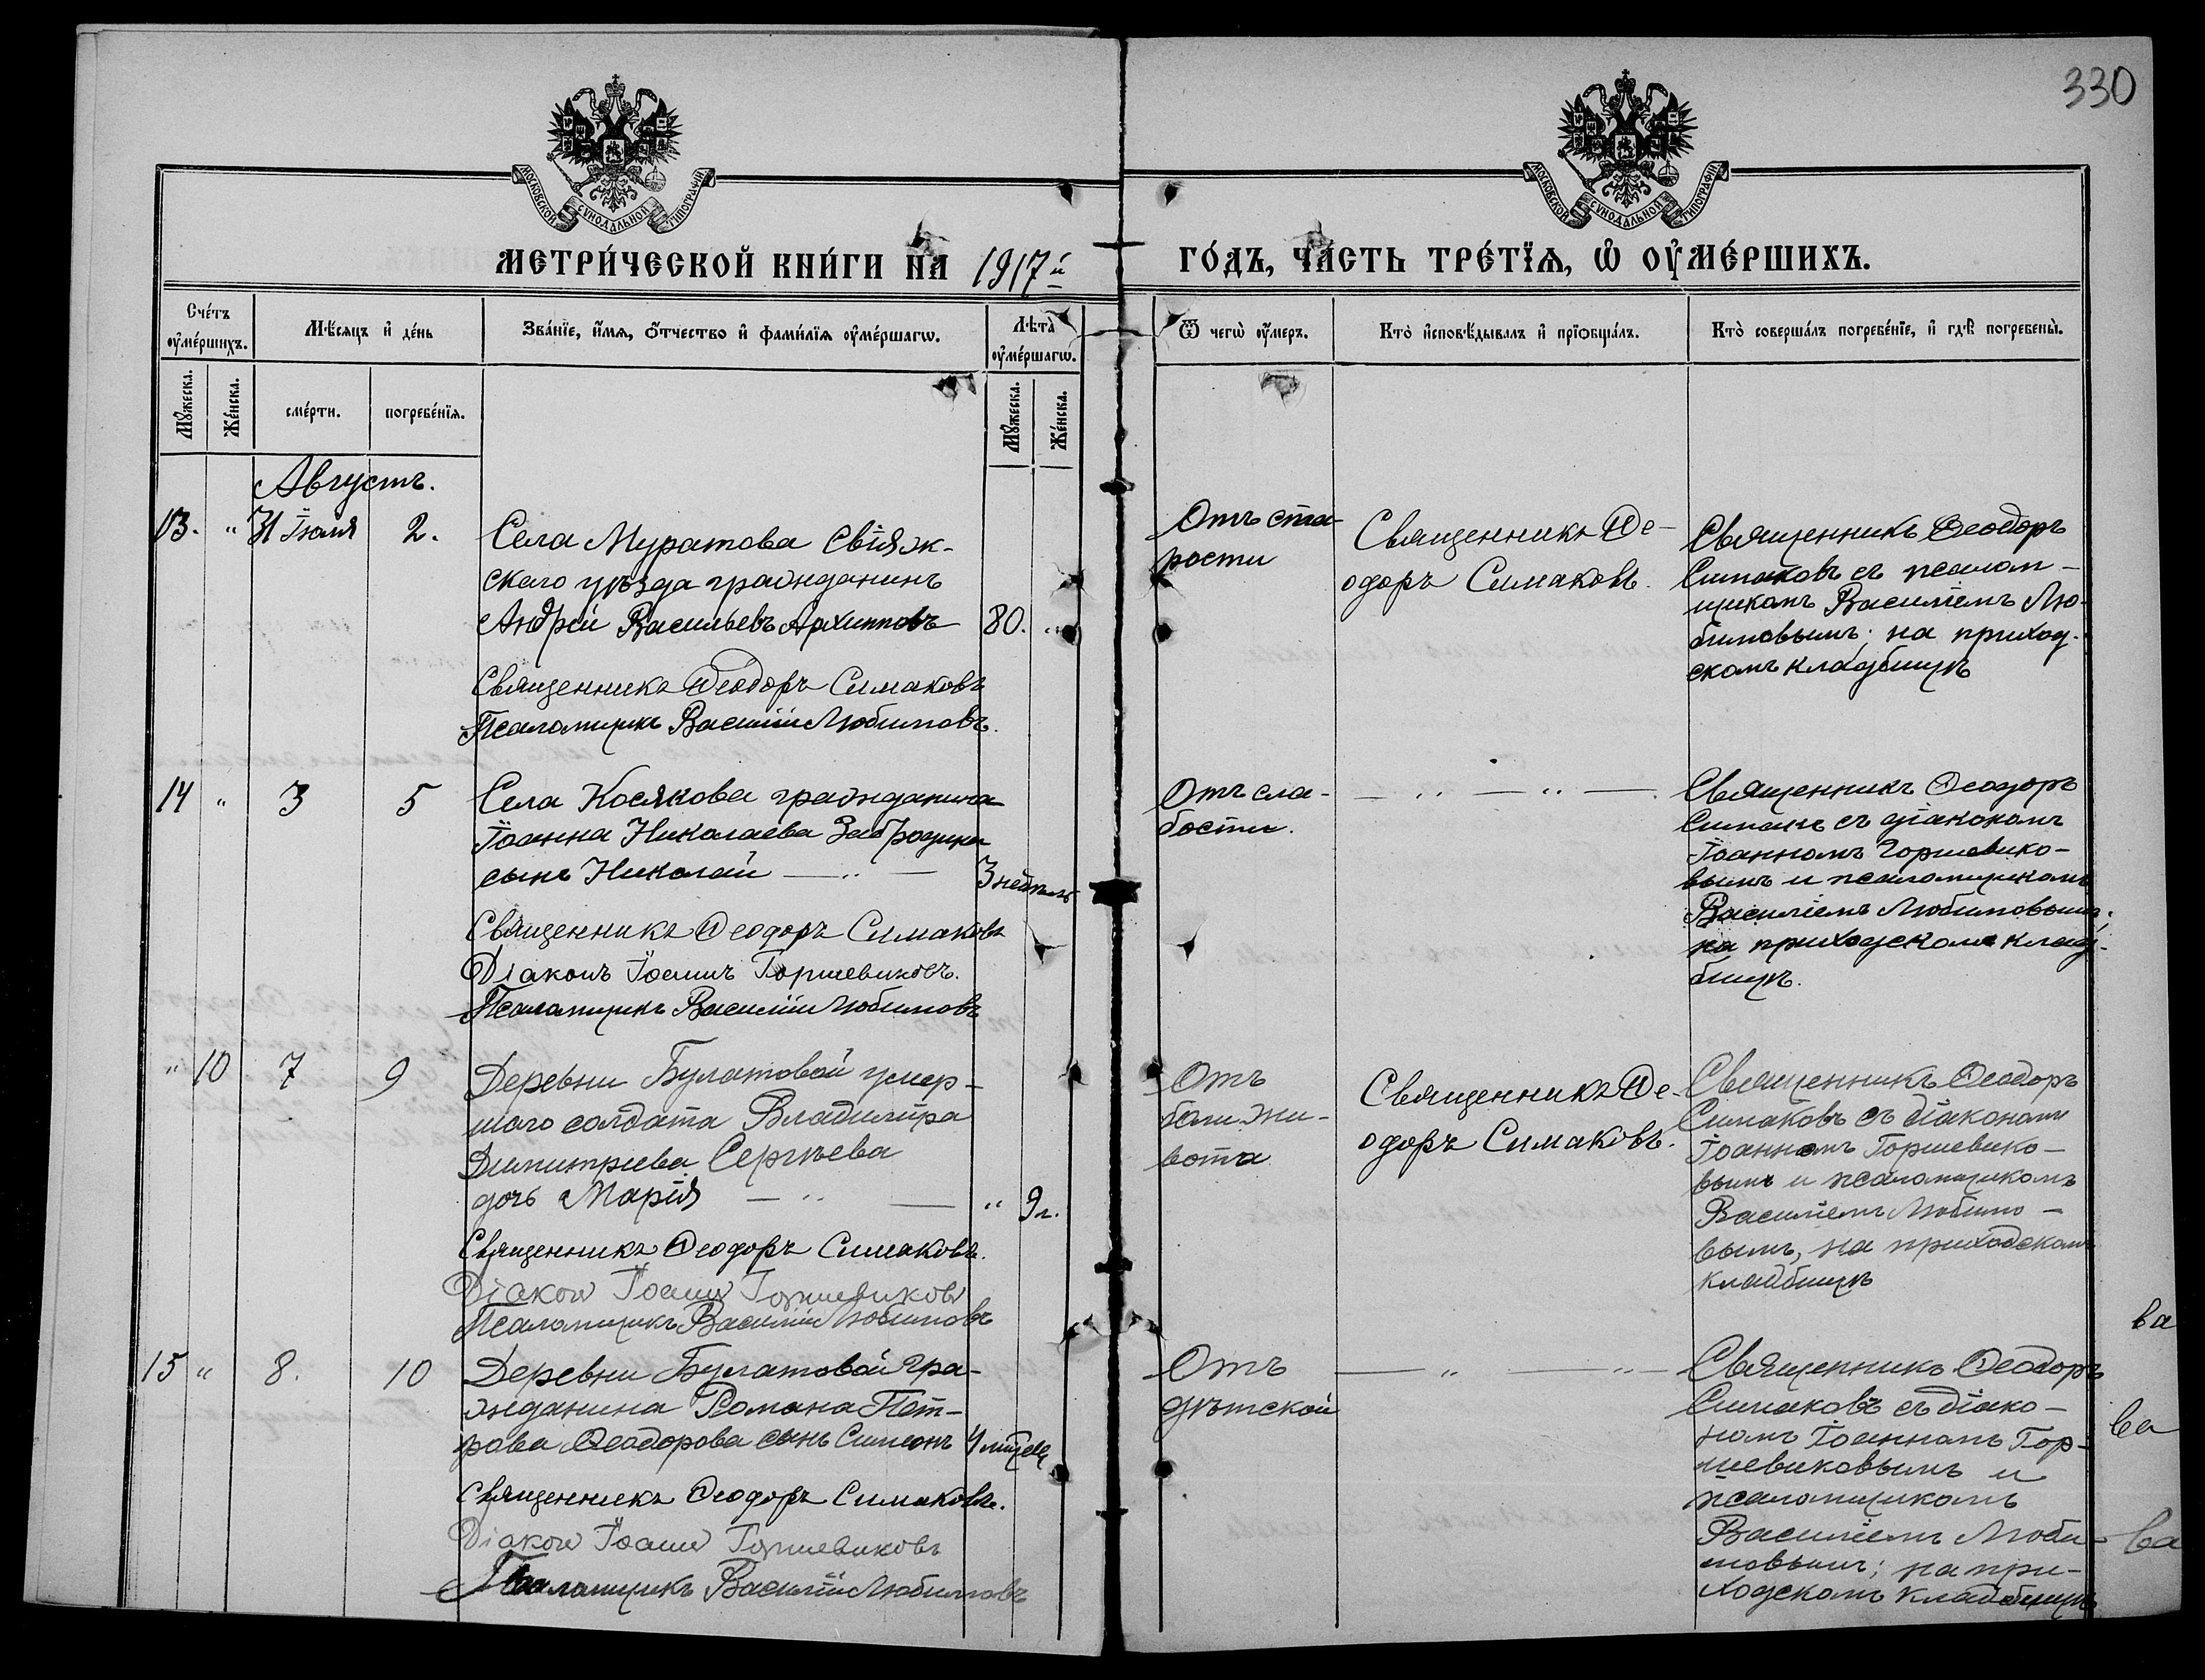 330
МОСКОВСКОЙ СѴНОДАЛЬНОЙ ТИПОГРАФІИ
МОСКОВСКОЙ СѴНОДАЛЬНОЙ ТИПОГРАФІИ
МЕТРИ́ЧЕСКОЙ КНИ́ГИ НА 1917й ГО́ДЪ, ЧА́СТЬ ТРЕ́ТЇѦ, Ѡ҆ ОУ҆МЕ́РШИХЪ.
Сче́тъ оу҆ме́ршихъ.
Мꙋ́жеска.
Же́нска.
Мѣ́сяцъ и҆ де́нь
сме́рти.
погребе́нїѧ.
Зва́нїе, и҆́мѧ, ѻ҆́тчество и҆ фами́лїѧ оу҆ме́ршагѡ.
Лѣта̀ оу҆ме́ршагѡ.
Мꙋ́жеска.
Же́нска.
Ѿ чегѡ̀ оу҆́меръ.
Кто̀ и҆сповѣ́дывалъ и҆ прїѡбща́лъ.
Кто̀ соверша́лъ погребе́нїе, и҆ гдѣ̀ погребены̀.
Августъ.
13. " 31 Іюля 2.
Села Муратова Свіяж-
скаго уѣзда гражданинъ
Андрей Васильевъ Архиповъ 80. "
Священникъ Ѳеодоръ Симаковъ
Псаломщикъ Василій Любимовъ.
Отъ ста-
рости
Священникъ Ѳе-
одоръ Симаковъ.
Священникъ Ѳеодоръ
Симаковъ съ псалом-
щикомъ Василіемъ Лю-
бимовымъ; на приход-
скомъ кладбищѣ
14 " 3 5
Села Косякова гражданина
Іоанна Николаева
сынъ Николай — " — 3 недѣль
Священникъ Ѳеодоръ Симаковъ
Діаконъ Іоаннъ Горшевиковъ.
Псаломщикъ Василій Любимовъ
Отъ сла-
бости.
— " — " —
Священникъ Ѳеодоръ
съ діакономъ
Іоанномъ Горшевико-
вымъ и псаломщикомъ
Василіемъ Любимовымъ;
на приходскомъ клад-
бищѣ.
" 10 7 9
Деревни Булатовой умер-
шаго солдата Владиміра
Димитріева Сергѣева
дочь Марія — " — " 9 л.
Священникъ Ѳеодоръ Симаковъ.
Діаконъ Іоаннъ Горшевиковъ
Псаломщикъ Василій Любимовъ
Отъ
боли жи-
вота
Священникъ Ѳе-
одоръ Симаковъ.
Священникъ Ѳеодоръ
Симаковъ съ діакономъ
Іоанномъ Горшевико-
вымъ и псаломщикомъ
Василіемъ Любимо-
вымъ, на приходскомъ
кладбищѣ
15 " 8. 10
Деревни Булатовой гра-
жданина Романа Пет-
рова Ѳеодорова сынъ Симеонъ 4
Священникъ Ѳеодоръ Симаковъ.
Діаконъ Іоаннъ Горшевиковъ
Псаломщикъ Василій Любимовъ
Отъ
дѣтской
— " — " —
Священникъ Ѳеодоръ
Симаковъ съ діако-
номъ Іоанномъ Гор-
шевиковымъ и
псаломщикомъ
Василіемъ Люби-
мовымъ; на при-
ходскомъ кладбищѣ
ва
ва
ва